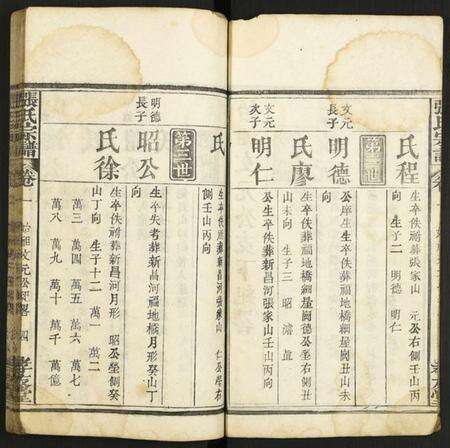 張氏宗譜 卷一
氏程
生卒佚祔葬張家山 元公右側壬山丙
向 生子二 明德 明仁
第二世
文元
長子
明德
公庠生生卒佚葬福地橋細屋閥丑山未
向
氏廖
生卒佚葬福地橋細屋閥德公塋右側丑
山未向 生子三 昭 濬
文元
次子
明仁
公生卒佚葬新昌河張家山壬山丙向
氏
生卒佚葬新昌河張家山 仁公塋右
側壬山丙向
第三世
明德
長子
昭公
生卒失考葬新昌河福地橋月形癸山丁
向
氏徐
生卒佚祔葬新昌河月形 昭公塋側癸
山丁向 生子十二 萬一 萬二
萬三 萬四 萬五 萬六 萬七
萬八 萬九 萬十 萬千 萬億
張氏宗譜 卷一